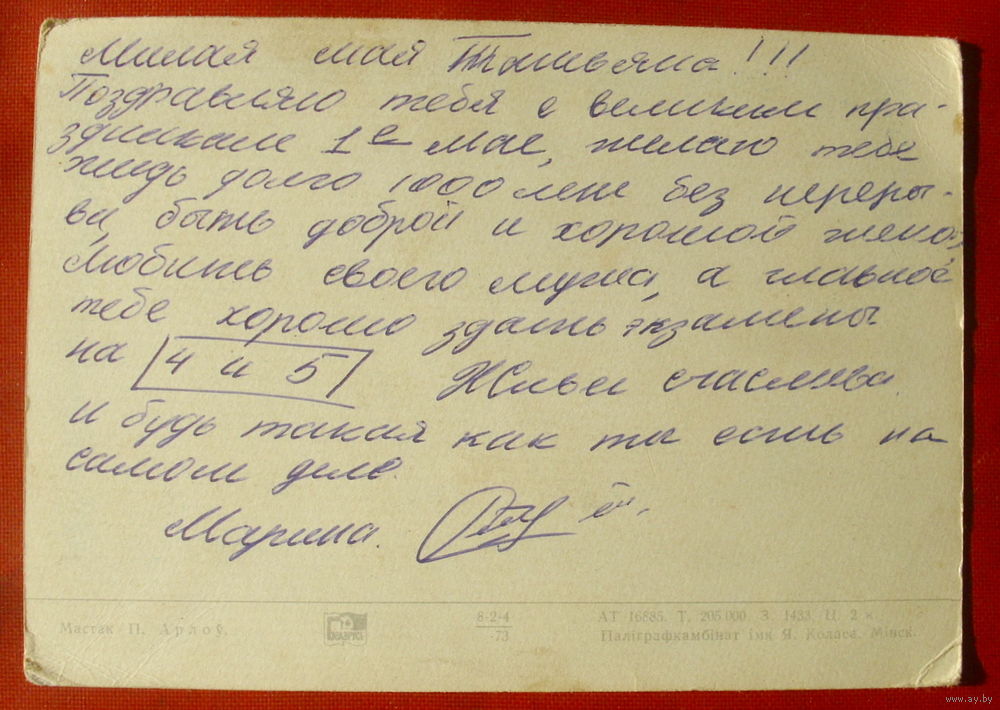 Милая мая Татьяна!!!
Поздравляю тебя с великим пра-
здником 1е мае, желаю тебе
жидь долго 1000 лет без переры-
ва, быть доброй и хорошой жено,
любить своего мужа, а главное
тебе хорошо здать экзамены
на 4 и 5 Живи счаслива
и будь такая как ты есть на
самом деле.
Марина.
Мастак П. Арлоў.
БЕЛАРУСЬ
8-2-4
-73
АТ 16885. Т. 205 000 З. 1433. Ц. 2 к.
Паліграфкамбінат імя Я. Коласа. Мінск.
www.ay.by